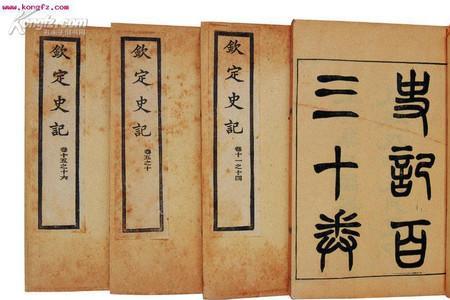 www.kongfz.com
Kongfz.com
史記百
三十卷
欽定史記
卷十一之十四
欽定史記
卷五之十
欽定史記
卷十五之十六